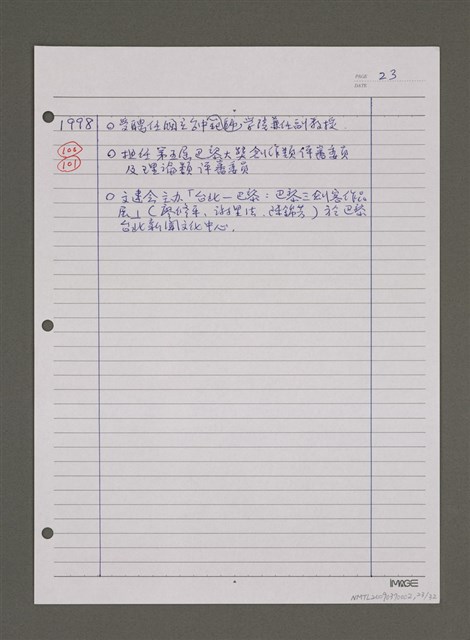 PAGE 23
DATE
1998 ○受聘任國立台中範師學院兼任副教授.
100 ○担任第五屆巴黎大獎創作類評審委員
101 及理論類評審委員
○文建会主办「台北—巴黎：巴黎三劍客作品
展」(廖修平、謝里法、陳錦芳)於巴黎
台北新聞文化中心.
IMAGE